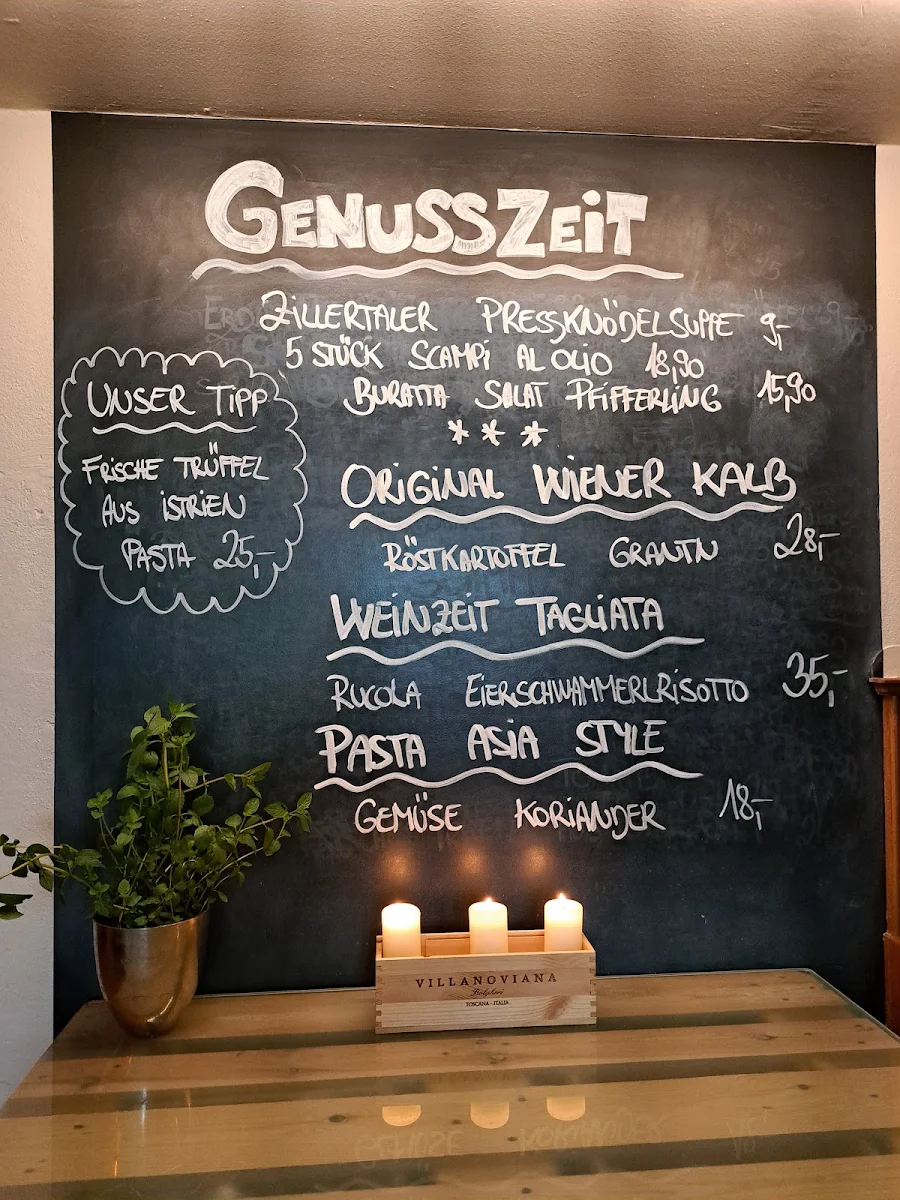 GENUSSZEIT
ZILLERTALER PRESSKNÖDELSUPPE 9,-
5 STÜCK SCAMPI AL OLIO 18,90
BURATTA SALAT PFIFFERLING 15,90
***
UNSER TIPP
FRISCHE TRÜFFEL
AUS ISTRIEN
PASTA 25,-
ORIGINAL WIENER KALB
RÖSTKARTOFFEL GRANTN 28,-
WEINZEIT TAGLIATA
RUCOLA EIERSCHWAMMERLRISOTTO 35,-
PASTA ASIA STYLE
GEMÜSE KORIANDER 18,-
VILLANOVIANA
Bolgheri
TOSCANA - ITALIA